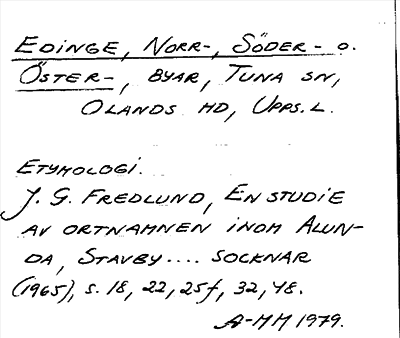 EDINGE, NORR-, SÖDER- o.
ÖSTER-, BYAR, TUNA SN,
OLANDS HD, UPPS.L.
ETYMOLOGI.
J. G. FREDLUND, EN STUDIE
AV ORTNAMNEN INOM ALUN-
DA, STAVBY.... SOCKNAR
(1965), S. 18, 22, 25f, 32, 48.
A-MM 1979.